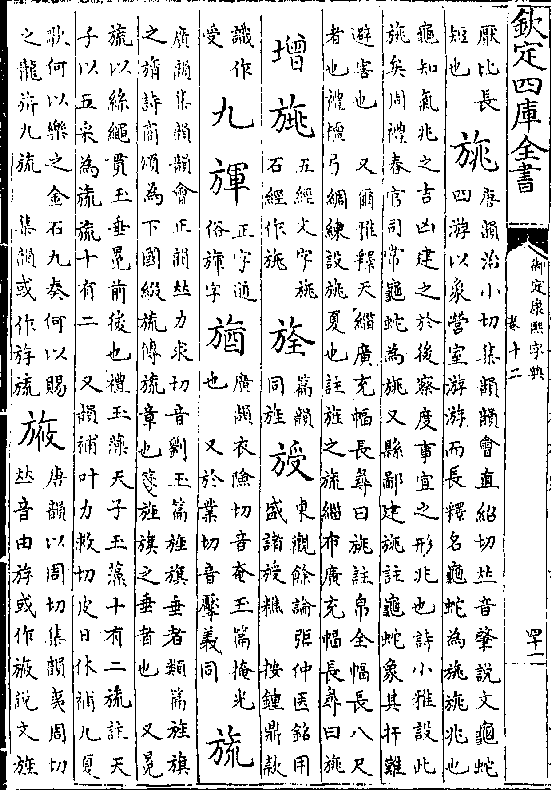 欽定四庫全書
御定康熙字典
卷十二
四十一
厭比長
短也 旐 唐韻治小切集韻韻會直紹切𠀤音肇說文龜蛇
四游以象營室游游而長釋名龜蛇為旐旐兆也
龜知氣兆之吉凶建之於後察度事宜之形兆也詩小雅設此
旐矣周禮春官司常龜蛇為旐又縣鄙建旐註龜蛇象其扞難
避害也 又爾雅釋天緇廣充幅長尋曰旐註帛全幅長八尺
者也禮檀弓綢練設旐夏也註旌之旒緇布廣充幅長尋曰旐
增 旐 五經文字旐
石經作旐 𣃘 篇韻
同旌 𣄚 東觀餘論張仲医銘用
盛諸𣄚糕 按鍾鼎款
識作
受 九 㫎 正字通
俗旆字 㫍 廣韻衣陰切音奄玉篇掩光
也 又於業切音壓義同 旒
廣韻集韻韻會正韻𠀤力求切音劉玉篇旌旗垂者類篇旌旗
之旒詩商頌為下國綴旒傳旒章也箋旌旗之垂者也 又冕
旒以絲繩貫玉垂冕前後也禮玉藻天子玉藻十有二旒註天
子以五采為旒旒十有二 又韻補叶力救切皮日休補九夏
歌何以樂之金石九奏何以賜
之龍旂九旒 集韻或作斿旒 㫍 唐韻以周切集韻夷周切
𠀤音由斿或作㫍說文旌